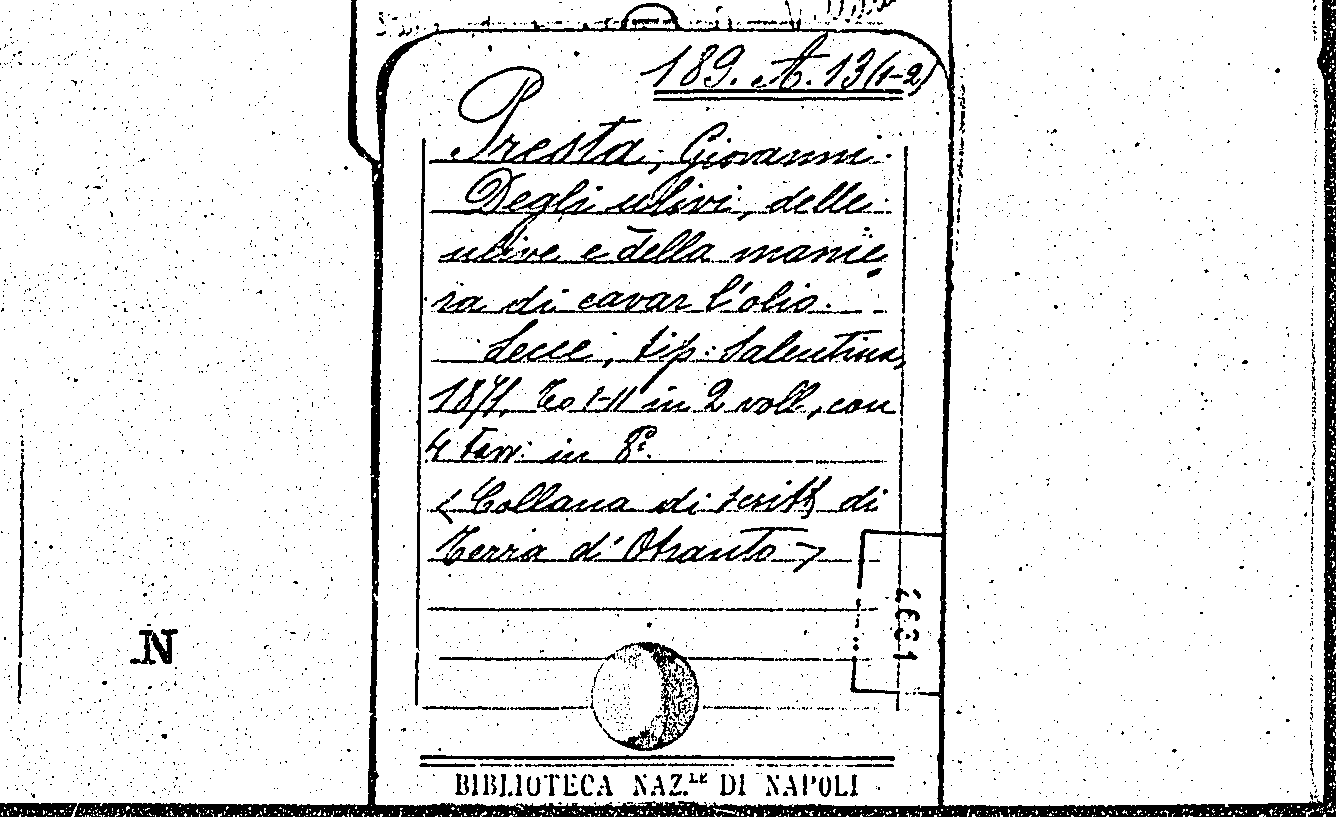 189. A. 13 (1-2)
Presta, Giovanni.
Degli ulivi, delle
ulive e della manie
ra di cavar l'olio.
Lecce, tip. Salentina,
1871. To I-II in 2 voll, con
4 tavv. in 8º.
(Collana di scritt. di
Terra d'Otranto)
4631
N
BIBLIOTECA NAZ.LE DI NAPOLI